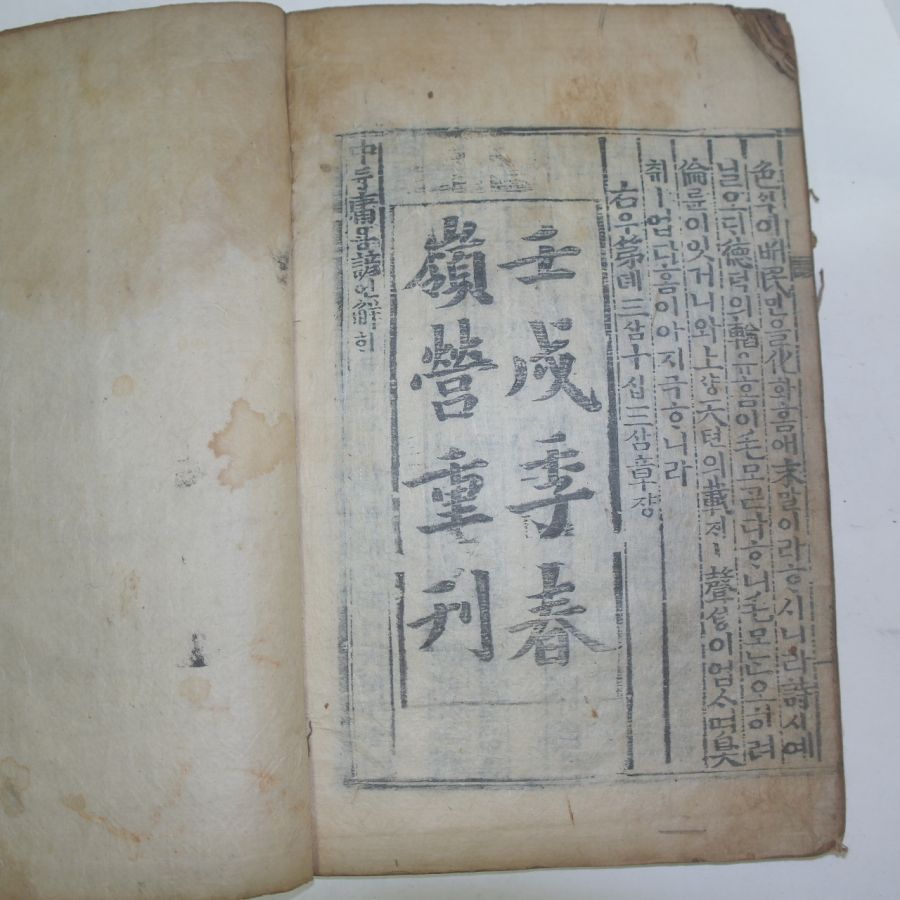 色ᄉᆡᆨ이ᄡᅥ民민을化화홈애末말이라ᄒᆞ시니라詩시예
닐오ᄃᆡ德덕의輶유홈이毛모ᄀᆞᆮ다ᄒᆞ니毛모ᄂᆞᆫ오히려
倫륜이잇거니와上샹天텬의載ᄌᆡㅣ聲셩이업스며臭
취ㅣ업다홈이아지극ᄒᆞ니라
右우第뎨三삼十십三삼章쟝
壬戌季春
嶺營重刊
中듀ᇰ庸요ᇰ諺언解ᄒᆡ